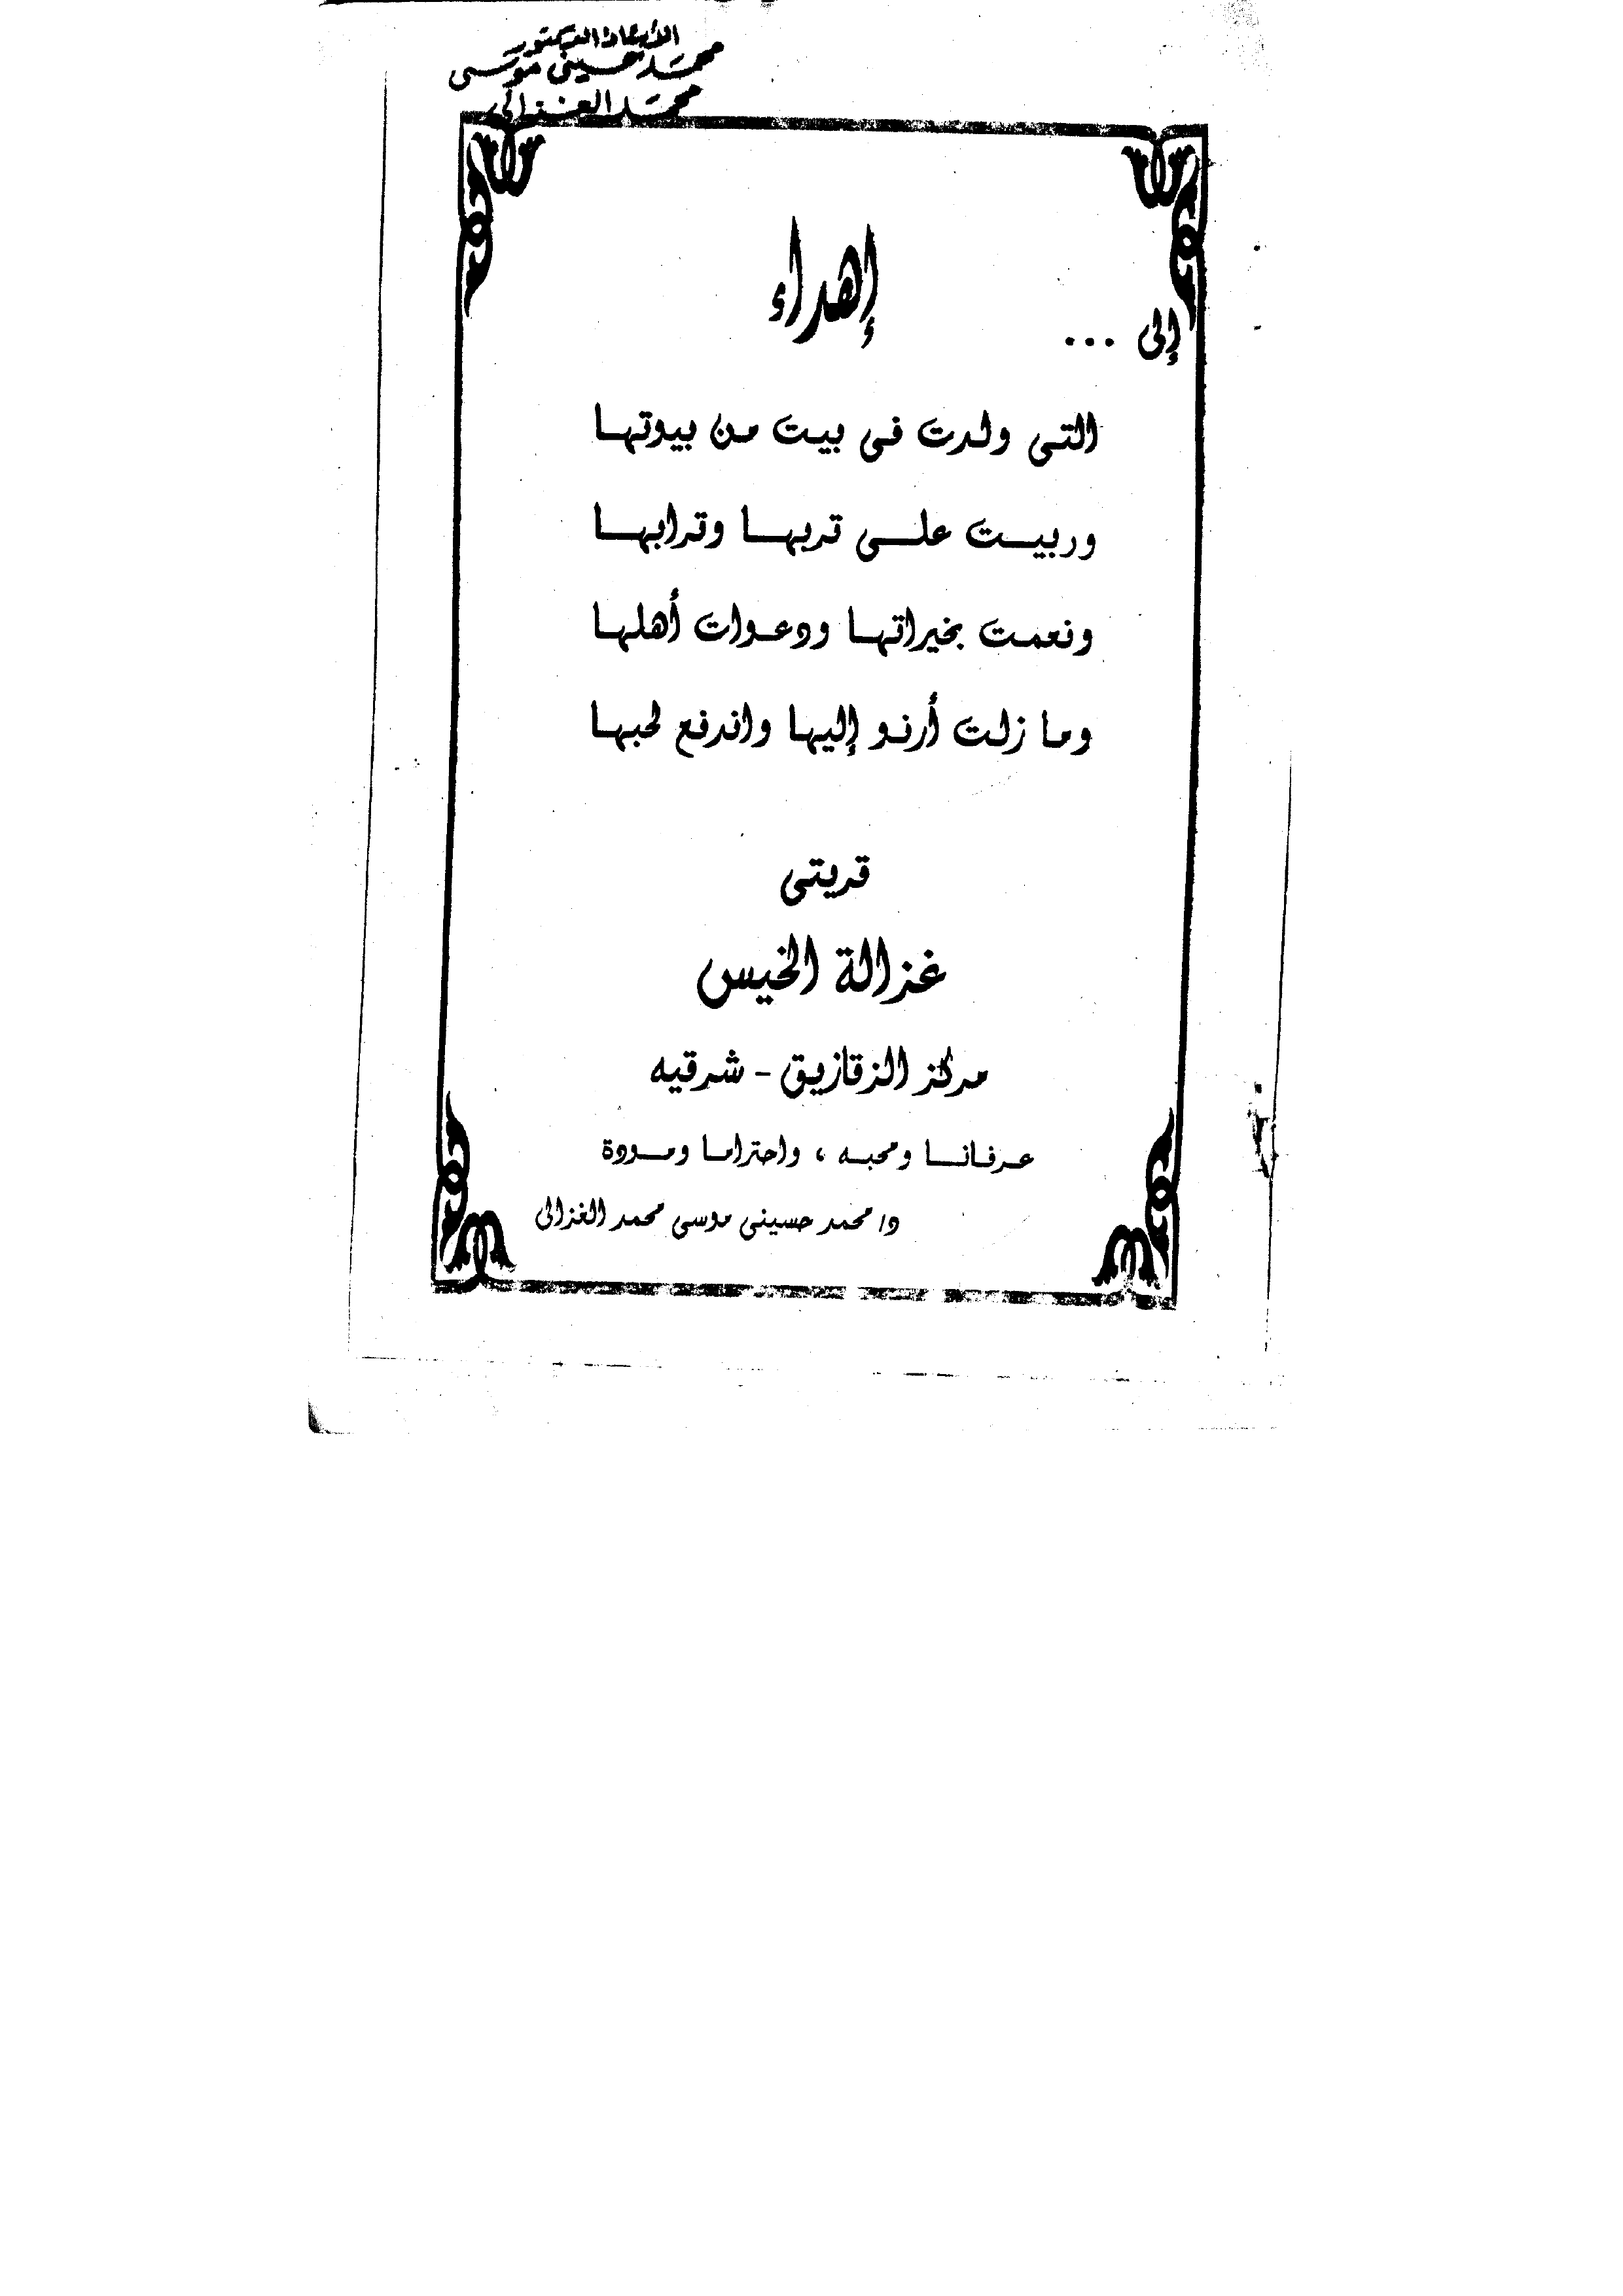 الأستاذ الدكتور
محمد حسينى موسى
محمد الغزالى
إهداء
إلى ...
التى ولدت فى بيت من بيوتها
وربيت على تربها وترابها
ونعمت بخيراتها ودعوات أهلها
وما زلت أرنو إليها واندفع لحبها
قريتى
غزالة الخيس
مركز الزقازيق - شرقيه
عرفانا ومحبه ، واحتراما ومودة
د/ محمد حسينى موسى محمد الغزالى